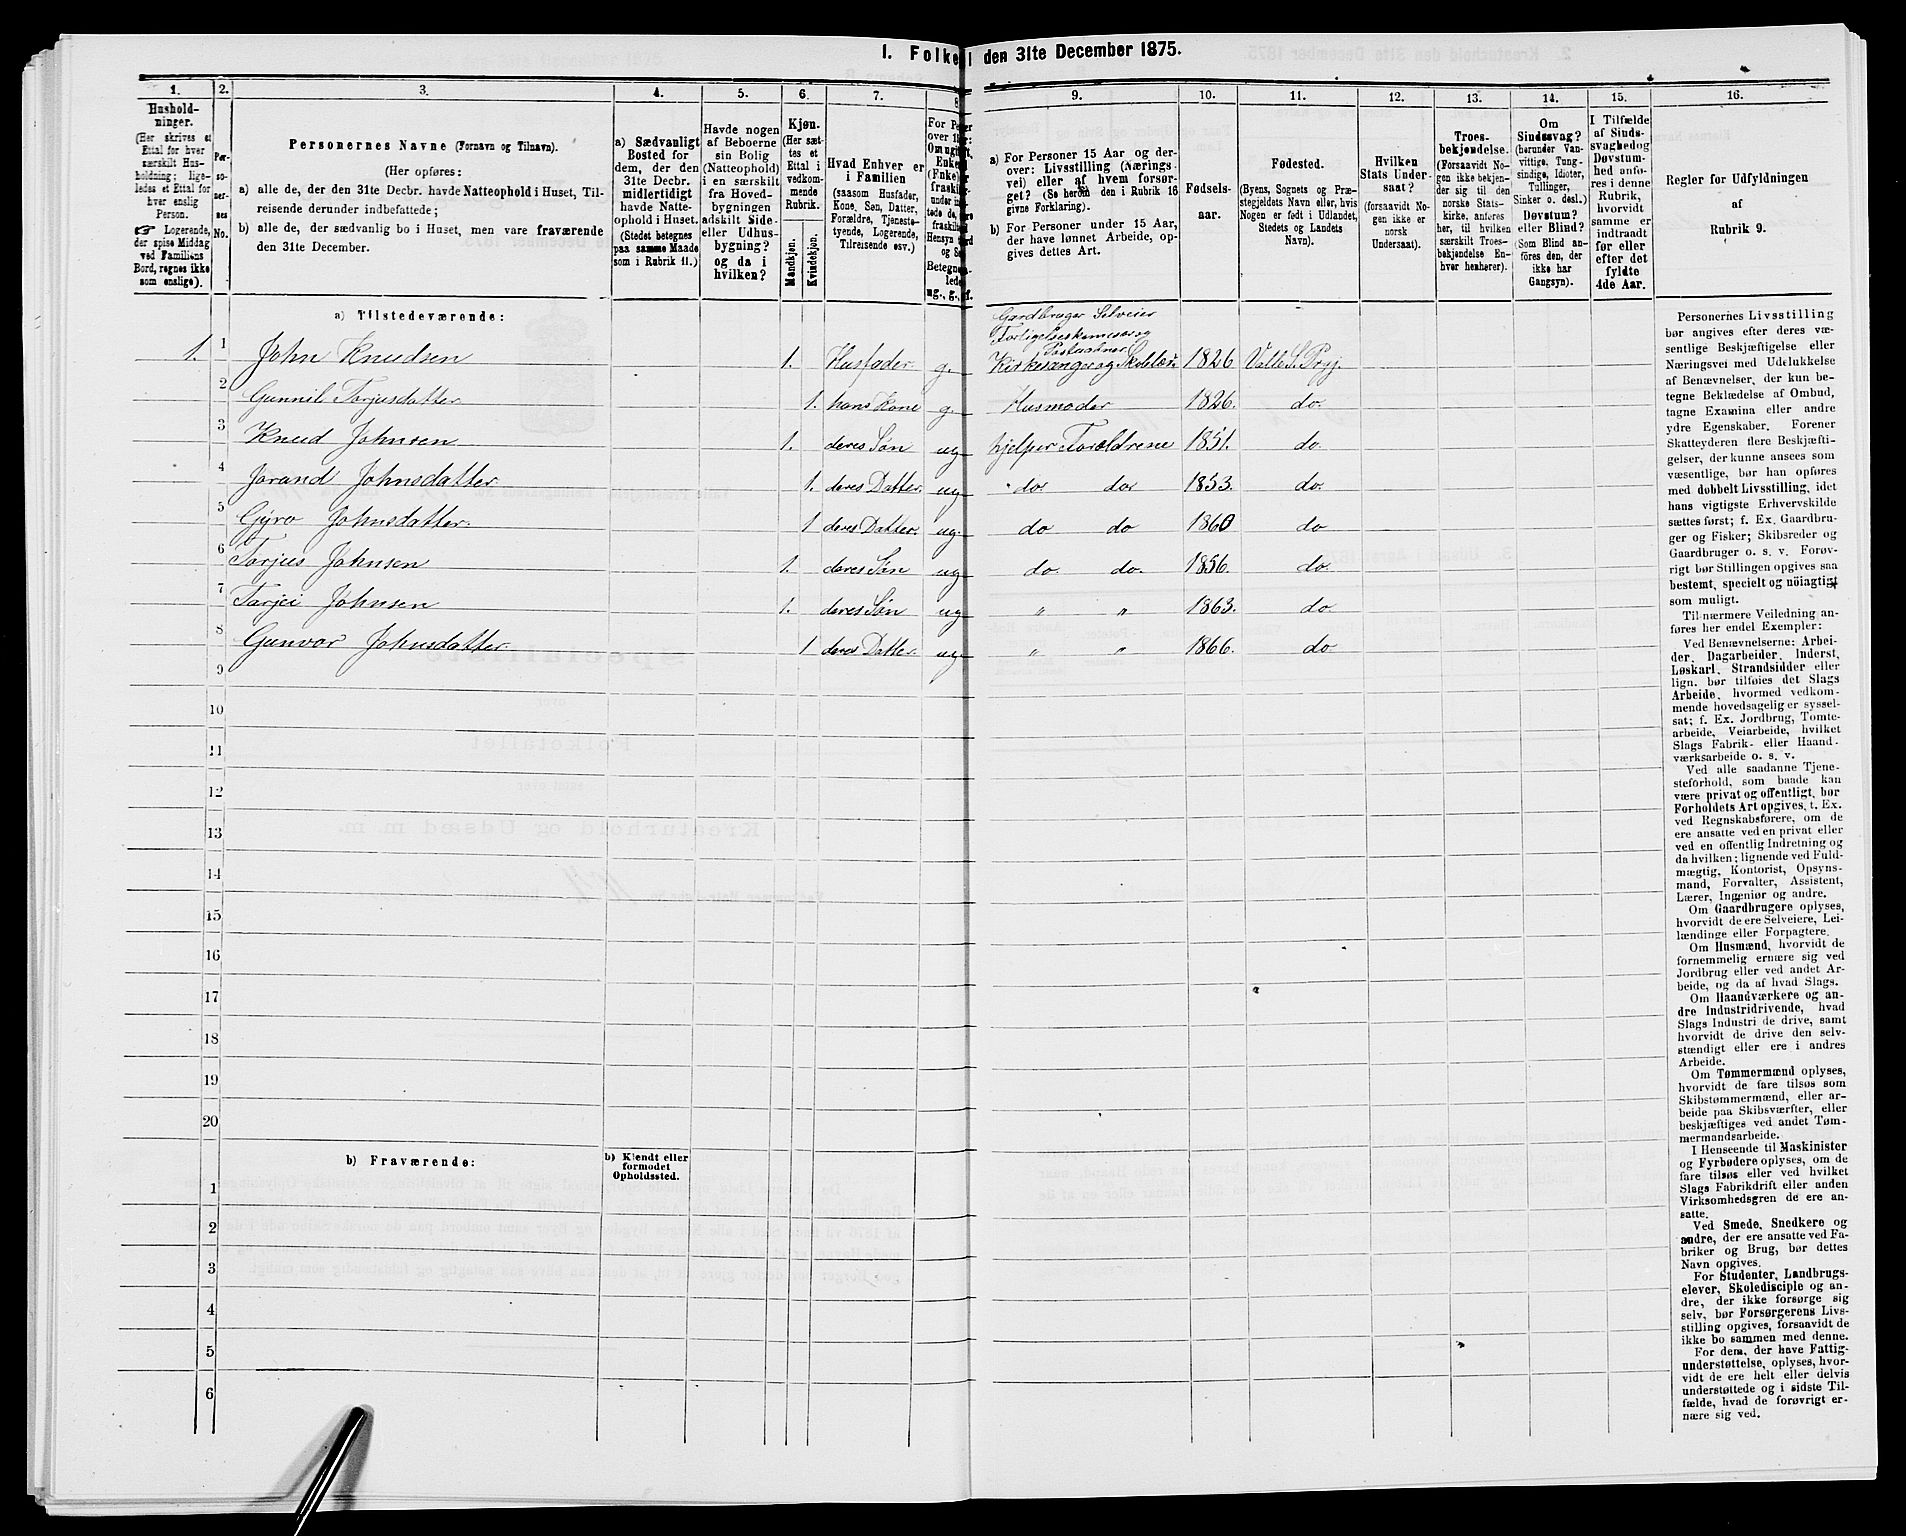 1. Folke
den 31te December 1875.
1.
Hushold-
ninger.
(Her skrives et
Ettal for hver
særskilt Hus-
holdning; lige-
ledes et Ettal for
hver enslig
Person.
☞ Logerende,
der spise Middag
ved Familiens
Bord, regnes ikke
som enslige).
2.
Per-
so-
ner-
nes
No.
3.
Personernes Navne (Fornavn og Tilnavn).
(Her opføres:
a) alle de, der den 31te Decbr. havde Natteophold i Huset, Til-
reisende derunder indbefattede;
b) alle de, der sædvanlig bo i Huset, men vare fraværende
den 31te December.
4.
a) Sædvanligt
Bosted for
dem, der den
31te Decbr.
midlertidigt
havde Natte-
ophold i Huset.
(Stedet betegnes
paa samme Maade
som i Rubrik 11.)
5.
Havde nogen
af Beboerne
sin Bolig
(Natteophold)
i en særskilt
fra Hoved-
bygningen
adskilt Side-
eller Udhus-
bygning? og da i
hvilken?
6.
Kjøn.
(Her sæt-
tes et
Ettal i
vedkom-
mende
Rubrik.
Mandkjøn.
Kvindekjøn.
7.
Hvad Enhver er
i Familien
(saasom Husfader,
Kone, Søn, Datter,
Forældre, Tjeneste-
tyende, Logerende,
Tilreisende osv.)
8
9.
a) For Personer 15 Aar og der-
over: Livsstilling (Nærings-
vei) eller af hvem forsør-
get? (Se herom den i Rubrik 16
givne Forklaring).
b) For Personer under 15 Aar,
der have lønnet Arbeide, op-
gives dettes Art.
10.
Fødsels-
aar.
11.
Fødested.
(Byens, Sognets og Præ-
stegjeldets Navn eller, hvis
Nogen er født i Udlandet,
Stedets og Landets
Navn).
12.
Hvilken
Stats Under-
saat?
(forsaavidt No-
gen ikke er
norsk
Undersaat).
13.
Troes-
bekjendelse.
(Forsaavidt No-
gen ikke bekjen-
der sig til den
norske Stats-
kirke, anføres
her, til hvilken
særskilt Troes-
bekjendelse En-
hver henhører).
14.
Om
Sindssvag?
(herunder Van-
vittige, Tung-
sindige, Idioter,
Tullinger,
Sinker o. desl.)
Døvstum?
eller Blind?
(Som Blind an-
føres den, der
ikke har
Gangsyn).
15.
I Tilfælde
af Sinds-
svaghed og
Døvstum-
hed anfø-
res i denne
Rubrik,
hvorvidt
samme er
indtraadt
før eller
efter det
fyldte
4de Aar.
16.
Regler for Udfyldningen
af
Rubrik 9.
a) Tilstedeværende:
Gardbruger Selveier
Forligelseskommissær og
Postaabner
1. 1 John Knudsen 1. Husfader g. Kirkesanger og Skolelær: 1826 Valle S. Prgj.
2 Gunnil Torjusdatter 1. hans Kone g. Husmoder 1826. do.
3 Knud Johnsen 1. deres Søn ug hjelper Forældrene 1851. do.
4 Jorand Johnsdatter 1. deres Datter. ug do do 1853. do.
5 Gyro Johnsdatter. 1 deres Datter. ug. do do 1860 do
6 Torjus Johnsen 1. deres Søn ug do. do. 1856. do.
7 Tarjei Johnsen 1. deres Søn ug " " 1863. do
8 Gunvor Johnsdatter. 1 deres Datter. ug " " 1866. do.
9
10
11
12
13
14
15
16
17
18
19
20
b) Fraværende:
b) Kjendt eller
formodet
Opholdssted.
1
2
3
4
5
6
Personernes Livsstilling
bør angives efter deres væ-
sentlige Beskjæftigelse eller
Næringsvei med Udelukkelse
af Benævnelser, der kun be-
tegne Beklædelse af Ombud,
tagne Examina eller andre
ydre Egenskaber. Forener
Skatteyderen flere Beskjæfti-
gelser, der kunne ansees som
væsentlige, bør han opføres
med dobbelt Livsstilling, idet
hans vigtigste Erhvervskilde
sættes først; f. Ex. Gaardbru-
ger og Fisker; Skibsreder og
Gaardbruger o. s. v. Forøv-
rigt bør Stillingen opgives saa
bestemt, specielt og nøiagtigt
som muligt.
Til nærmere Veiledning an-
føres her endel Exempler:
Ved Benævnelserne: Arbei-
der, Dagarbeider, Inderst,
Løskarl, Strandsidder eller
lign. bør tilføies det Slags
Arbeide, hvormed vedkom-
mende hovedsagelig er syssel-
sat; f. Ex. Jordbrug, Tomte-
arbeide, Veiarbeide, hvilket
Slags Fabrik- eller Haand-
værksarbeide o. s. v.
Ved alle saadanne Tjene-
steforhold, som baade kan
være privat og offentligt, bør
Forholdets Art opgives, t. Ex.
ved Regnskabsførere, om de
ere ansatte ved en privat eller
ved en offentlig Indretning og
da hvilken; lignende ved Fuld-
mægtig, Kontorist, Opsyns-
mand, Forvalter, Assistent,
Lærer, Ingeniør og andre.
Om Gaardbrugere oplyses,
hvorvidt de ere Selveiere, Lei-
lændinge eller Forpagtere.
Om Husmænd, hvorvidt de
fornemmelig ernære sig ved
Jordbrug eller ved andet Ar-
beide, og da af hvad Slags.
Om Haandværkere og an-
dre Industridrivende, hvad
Slags Industri de drive, samt
hvorvidt de drive den selv-
stændigt eller ere i andres
Arbeide.
Om Tømmermænd oplyses,
hvorvidt de fare tilsøs som
Skibstømmermænd, eller ar-
beide paa Skibsværfter, eller
beskjæftiges ved andet Tøm-
mermandsarbeide.
I Henseende til Maskinister
og Fyrbødere oplyses, om de
fare tilsøs eller ved hvilket
Slags Fabrikdrift eller anden
Virksomhedsgren de ere an-
satte.
Ved Smede, Snedkere og
andre, der ere ansatte ved Fa-
briker og Brug, bør dettes
Navn opgives.
For Studenter, Landbrugs-
elever, Skoledisciple og an-
dre, der ikke forsørge sig
selv, bør Forsørgerens Livs-
stilling opgives, forsaavidt de
ikke bo sammen med denne.
For dem, der have Fattig-
understøttelse, oplyses, hvor-
vidt de ere helt eller delvis
understøttede og i sidste Til-
fælde, hvad de forøvrigt er-
nære sig ved.